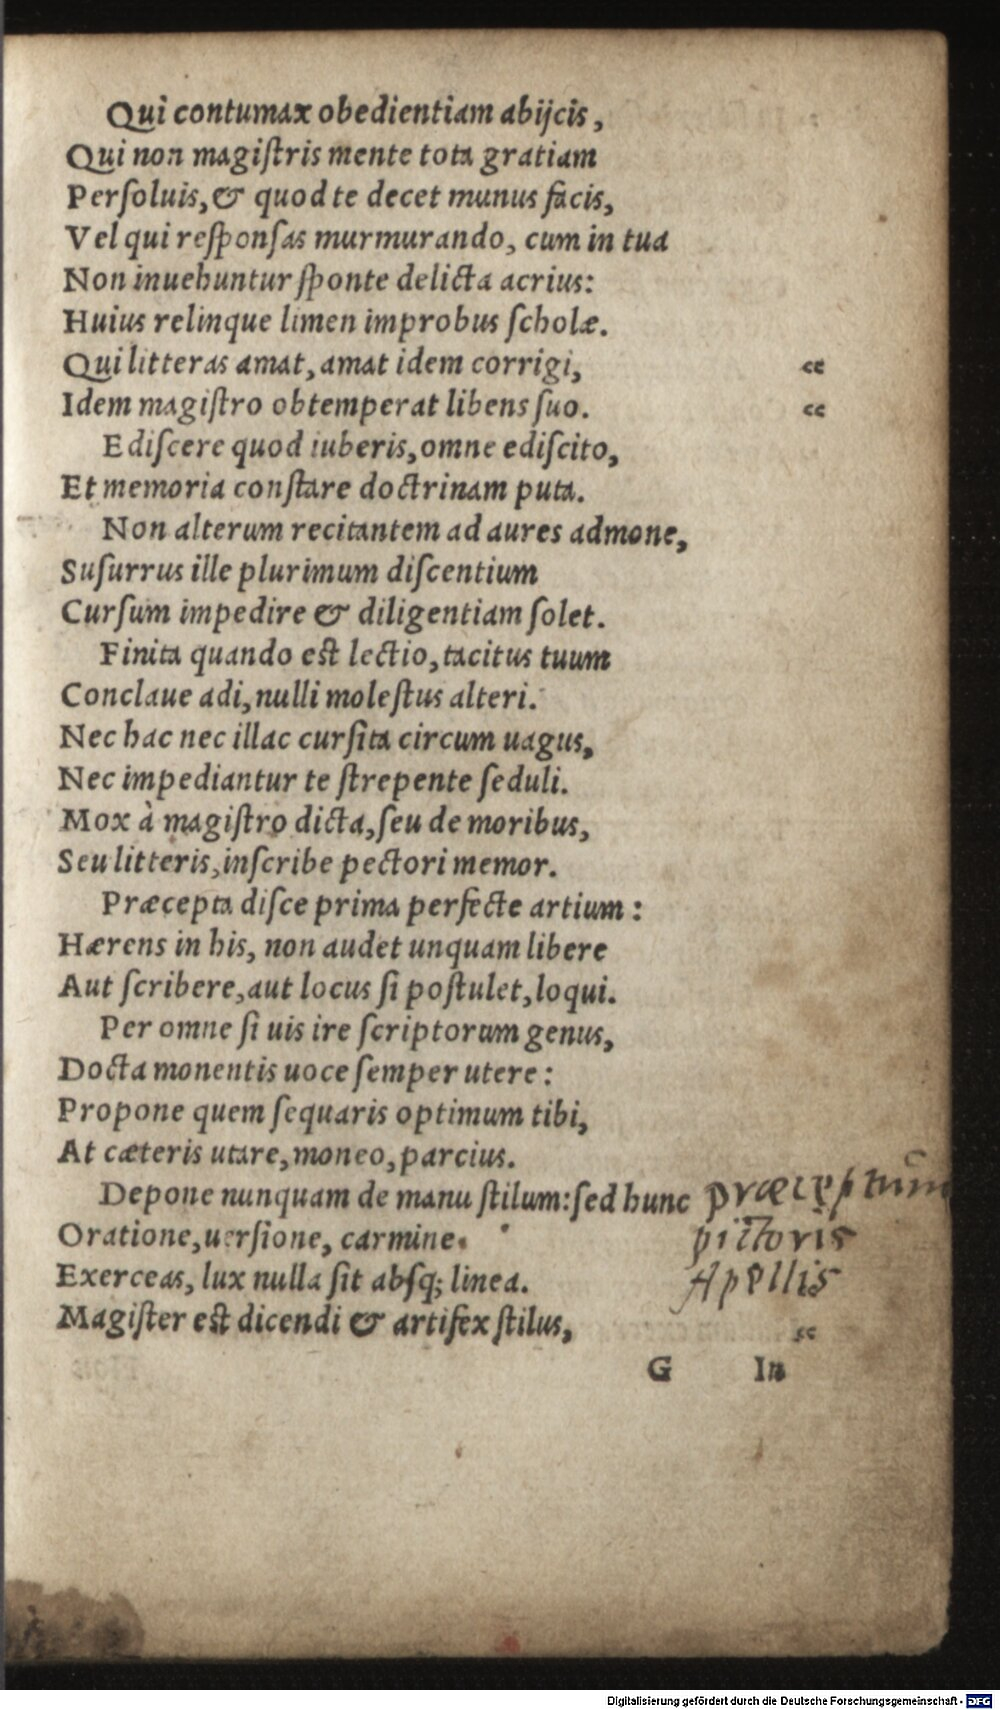 Qui contumax obedientiam abijcis,
Qui non magiſtris mente tota gratiam
Perſoluis, & quod te decet munus facis,
Vel qui reſponſas murmurando, cum in tua
Non inuehuntur ſponte delicta acrius:
Huius relinque limen improbus ſcholæ.
Qui litteras amat, amat idem corrigi, “
Idem magiſtro obtemperat libens ſuo. “
Ediſcere quod iuberis, omne ediſcito,
Et memoria conſtare doctrinam puta.
Non alterum recitantem ad aures admone,
Suſurrus ille plurimum diſcentium
Curſum impedire & diligentiam ſolet.
Finita quando eſt lectio, tacitus tuum
Conclaue adi, nulli moleſtus alteri.
Nec hac nec illac curſita circum uagus,
Nec impediantur te ſtrepente ſeduli.
Mox à magiſtro dicta, ſeu de moribus,
Seu litteris, inſcribe pectori memor.
Præcepta diſce prima perfecte artium:
Hærens in his, non audet unquam libere
Aut ſcribere, aut locus ſi poſtulet, loqui.
Per omne ſi uis ire ſcriptorum genus,
Docta monentis uoce ſemper utere:
Propone quem ſequaris optimum tibi,
At cæteris utare, moneo, parcius.
Depone nunquam de manu ſtilum: ſed hunc præceptum
Oratione, uerſione, carmine. pictoris
Exerceas, lux nulla ſit abſq; linea. Apellis
Magiſter eſt dicendi & artifex ſtilus, “
G In
Digitalisierung gefördert durch die Deutsche Forschungsgemeinschaft - DFG